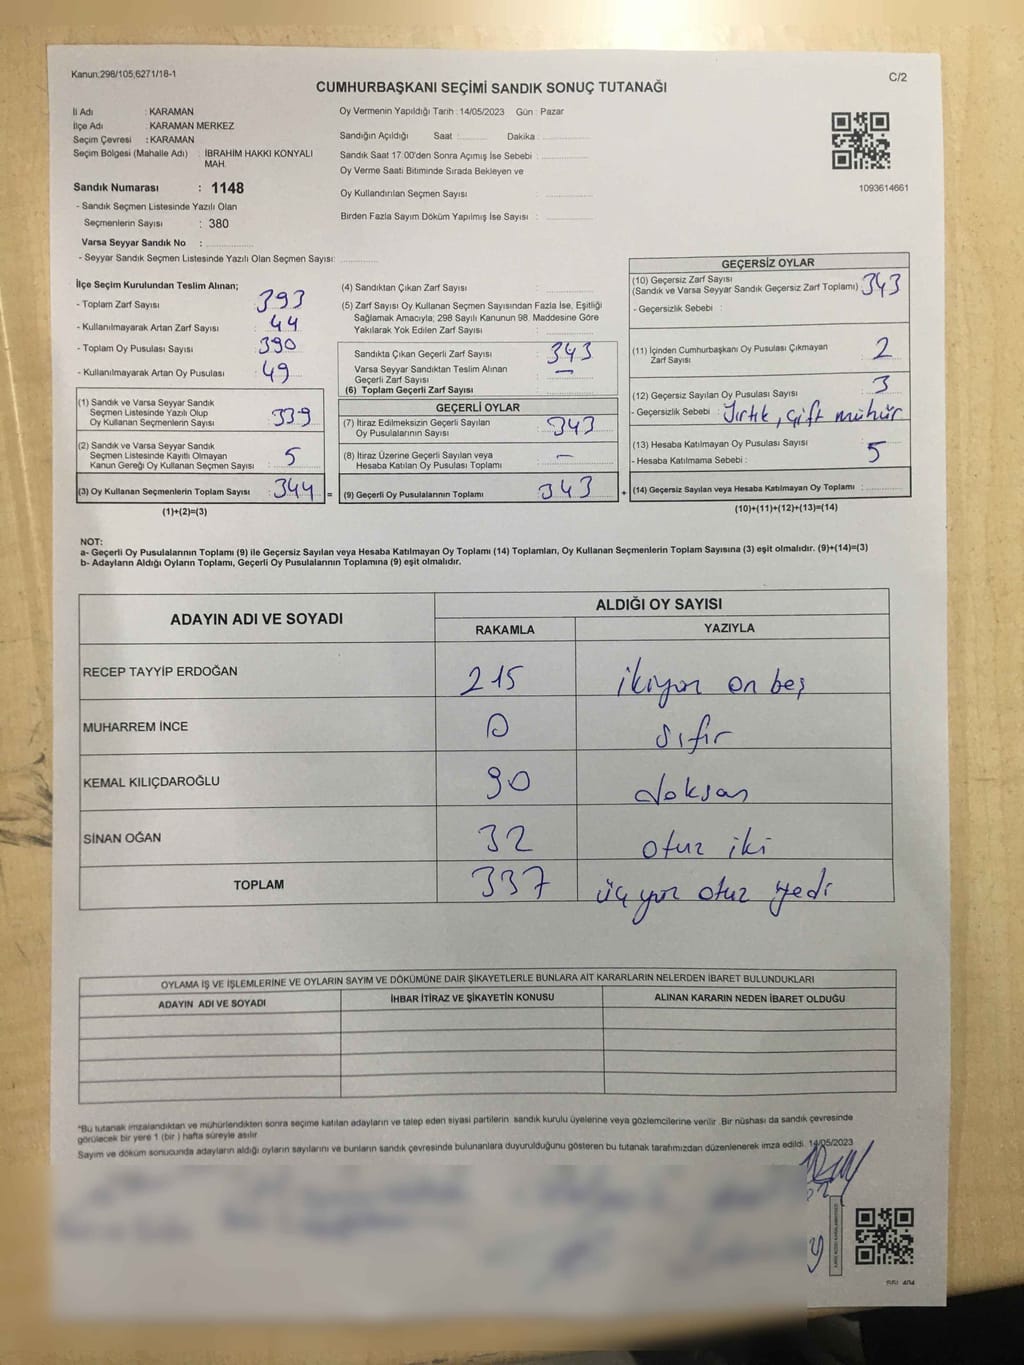 Kanun:298/105,6271/18-1
C/2
CUMHURBAŞKANI SEÇİMİ SANDIK SONUÇ TUTANAĞI
İl Adı : KARAMAN
İlçe Adı : KARAMAN MERKEZ
Seçim Çevresi : KARAMAN
Seçim Bölgesi (Mahalle Adı) : İBRAHİM HAKKI KONYALI
MAH.
Sandık Numarası : 1148
- Sandık Seçmen Listesinde Yazılı Olan
Seçmenlerin Sayısı : 380
Varsa Seyyar Sandık No :
- Seyyar Sandık Seçmen Listesinde Yazılı Olan Seçmen Sayısı:
Oy Vermenin Yapıldığı Tarih : 14/05/2023 Gün : Pazar
Sandığın Açıldığı Saat : Dakika :
Sandık Saat 17:00'den Sonra Açımış İse Sebebi :
Oy Verme Saati Bitiminde Sırada Bekleyen ve
Oy Kullandırılan Seçmen Sayısı :
Birden Fazla Sayım Döküm Yapılmış İse Sayısı :
1093614661
İlçe Seçim Kurulundan Teslim Alınan;
- Toplam Zarf Sayısı : 393
- Kullanılmayarak Artan Zarf Sayısı : 44
- Toplam Oy Pusulası Sayısı : 390
- Kullanılmayarak Artan Oy Pusulası : 49
(1) Sandık ve Varsa Seyyar Sandık
Seçmen Listesinde Yazılı Olup
Oy Kullanan Seçmenlerin Sayısı : 339
(2) Sandık ve Varsa Seyyar Sandık
Seçmen Listesinde Kayıtlı Olmayan
Kanun Gereği Oy Kullanan Seçmen Sayısı : 5
(3) Oy Kullanan Seçmenlerin Toplam Sayısı : 344 =
(1)+(2)=(3)
(4) Sandıktan Çıkan Zarf Sayısı :
(5) Zarf Sayısı Oy Kullanan Seçmen Sayısından Fazla İse, Eşitliği
Sağlamak Amacıyla; 298 Sayılı Kanunun 98. Maddesine Göre
Yakılarak Yok Edilen Zarf Sayısı :
Sandıkta Çıkan Geçerli Zarf Sayısı : 343
Varsa Seyyar Sandıktan Teslim Alınan
Geçerli Zarf Sayısı : —
(6) Toplam Geçerli Zarf Sayısı :
GEÇERLİ OYLAR
(7) İtiraz Edilmeksizin Geçerli Sayılan
Oy Pusulalarının Sayısı : 343
(8) İtiraz Üzerine Geçerli Sayılan veya
Hesaba Katılan Oy Pusulası Toplamı : –
(9) Geçerli Oy Pusulalarının Toplamı : 343 +
GEÇERSİZ OYLAR
(10) Geçersiz Zarf Sayısı
(Sandık ve Varsa Seyyar Sandık Geçersiz Zarf Toplamı) : 343
- Geçersizlik Sebebi :
(11) İçinden Cumhurbaşkanı Oy Pusulası Çıkmayan
Zarf Sayısı : 2
(12) Geçersiz Sayılan Oy Pusulası Sayısı : 3
- Geçersizlik Sebebi : Yırtık, çift mühür
(13) Hesaba Katılmayan Oy Pusulası Sayısı : 5
- Hesaba Katılmama Sebebi :
(14) Geçersiz Sayılan veya Hesaba Katılmayan Oy Toplamı :
(10)+(11)+(12)+(13)=(14)
NOT:
a- Geçerli Oy Pusulalarının Toplamı (9) ile Geçersiz Sayılan veya Hesaba Katılmayan Oy Toplamı (14) Toplamları, Oy Kullanan Seçmenlerin Toplam Sayısına (3) eşit olmalıdır. (9)+(14)=(3)
b- Adayların Aldığı Oyların Toplamı, Geçerli Oy Pusulalarının Toplamına (9) eşit olmalıdır.
ADAYIN ADI VE SOYADI ALDIĞI OY SAYISI
RAKAMLA YAZIYLA
RECEP TAYYİP ERDOĞAN 215 ikiyüz on beş
MUHARREM İNCE 0 sıfır
KEMAL KILIÇDAROĞLU 90 doksan
SİNAN OĞAN 32 otuz iki
TOPLAM 337 üç yüz otuz yedi
OYLAMA İŞ VE İŞLEMLERİNE VE OYLARIN SAYIM VE DÖKÜMÜNE DAİR ŞİKAYETLERLE BUNLARA AİT KARARLARIN NELERDEN İBARET BULUNDUKLARI
ADAYIN ADI VE SOYADI İHBAR İTİRAZ VE ŞİKAYETİN KONUSU ALINAN KARARIN NEDEN İBARET OLDUĞU
*Bu tutanak imzalandıktan ve mühürlendikten sonra seçime katılan adayların ve talep eden siyasi partilerin sandık kurulu üyelerine veya gözlemcilerine verilir. Bir nüshası da sandık çevresinde
görülecek bir yere 1 (bir) hafta süreyle asılır.
Sayım ve döküm sonucunda adayların aldığı oyların sayılarını ve bunların sandık çevresinde bulunanlara duyurulduğunu gösteren bu tutanak tarafımızdan düzenlenerek imza edildi. 14/05/2023